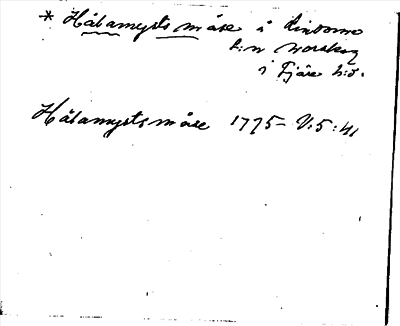 * Hålamyrsmåse i Lindome
s:n Norskog
i Fjäre h:d.
Hålamyrsmåse 1775 V:5:41